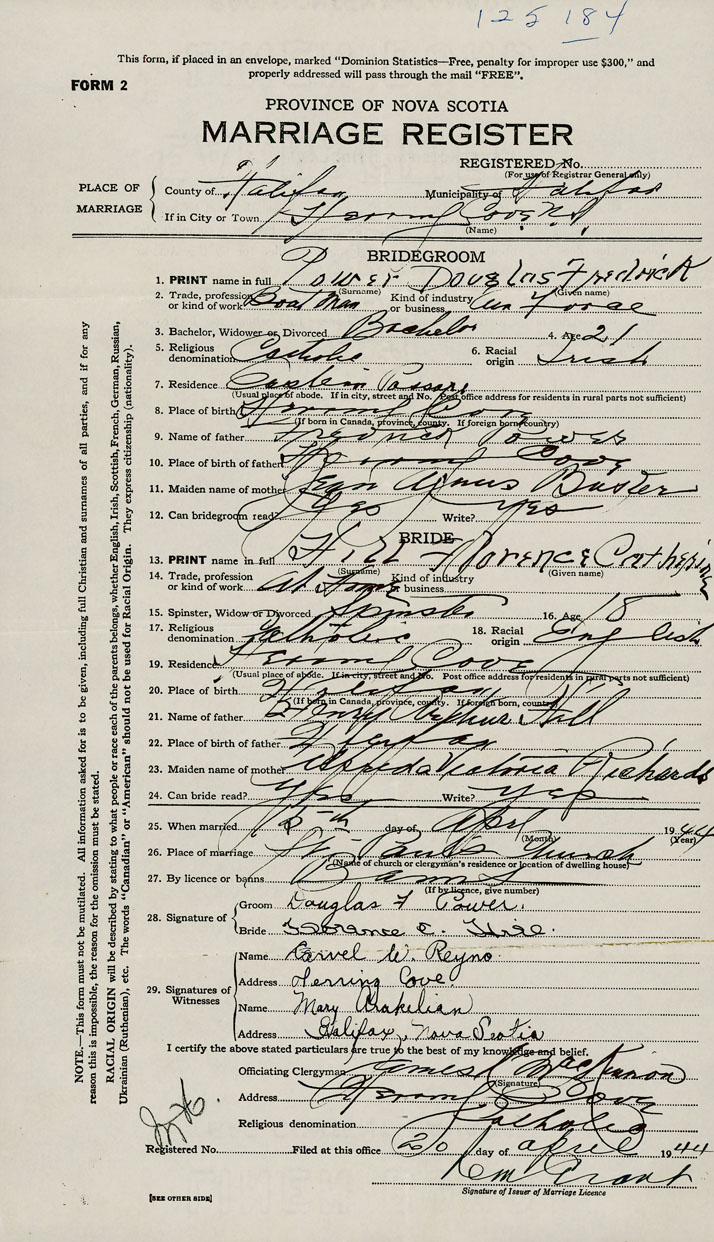 125 184
This form, if placed in an envelope, marked "Dominion Statistics—Free, penalty for improper use $300," and
properly addressed will pass through the mail "FREE".
FORM 2
PROVINCE OF NOVA SCOTIA
MARRIAGE REGISTER
REGISTERED No.
(For use of Registrar General only)
PLACE OF MARRIAGE
County of Halifax Municipality of Halifax
If in City or Town Herring Cove N.S.
(Name)
BRIDEGROOM
1. PRINT name in full Power Douglas Fredrick
(Surname) (Given name)
2. Trade, profession or kind of work Boat Man Kind of industry or business Air Force
3. Bachelor, Widower or Divorced Bachelor 4. Age 21
5. Religious denomination Catholic 6. Racial origin Irish
7. Residence Eastern Passage
(Usual place of abode. If in city, street and No. Post office address for residents in rural parts not sufficient)
8. Place of birth Herring Cove
(If born in Canada, province, county. If foreign born, country)
9. Name of father Fredrick Power
10. Place of birth of father Herring Cove
11. Maiden name of mother Jean Agnus Baster
12. Can bridegroom read? Yes Write? Yes
BRIDE
13. PRINT name in full Hill Florence Catherine
(Surname) (Given name)
14. Trade, profession or kind of work At Home Kind of industry or business
15. Spinster, Widow or Divorced Spinster 16. Age 18
17. Religious denomination Catholic 18. Racial origin English
19. Residence Herring Cove
(Usual place of abode. If in city, street and No. Post office address for residents in rural parts not sufficient)
20. Place of birth Halifax N.S.
(If born in Canada, province, county. If foreign born, country)
21. Name of father Henry Arthur Hill
22. Place of birth of father Halifax
23. Maiden name of mother Alfreda Victoria Richards
24. Can bride read? Yes Write? Yes
25. When married 15th day of April 1944
(Month) (Year)
26. Place of marriage St. Pauls Church
(Name of church or clergyman's residence or location of dwelling house)
27. By licence or banns Banns
(If by licence, give number)
28. Signature of
Groom Douglas F Power.
Bride Florence C. Hill.
29. Signatures of Witnesses
Name Carvel W. Reyno
Address Herring Cove.
Name Mary Arakelian
Address Halifax, Nova Scotia
I certify the above stated particulars are true to the best of my knowledge and belief.
Officiating Clergyman James MacKinnon
(Signature)
Address Herring Cove
Religious denomination Catholic
Registered No. Filed at this office 20 day of April 1944
C M Grant
Signature of Issuer of Marriage Licence
[SEE OTHER SIDE]
NOTE.—This form must not be mutilated. All information asked for is to be given, including full Christian and surnames of all parties, and if for any
reason this is impossible, the reason for the omission must be stated.
RACIAL ORIGIN will be described by stating to what people or race each of the parents belongs, whether English, Irish, Scottish, French, German, Russian,
Ukrainian (Ruthenian), etc. The words "Canadian" or "American" should not be used for Racial Origin. They express citizenship (nationality).